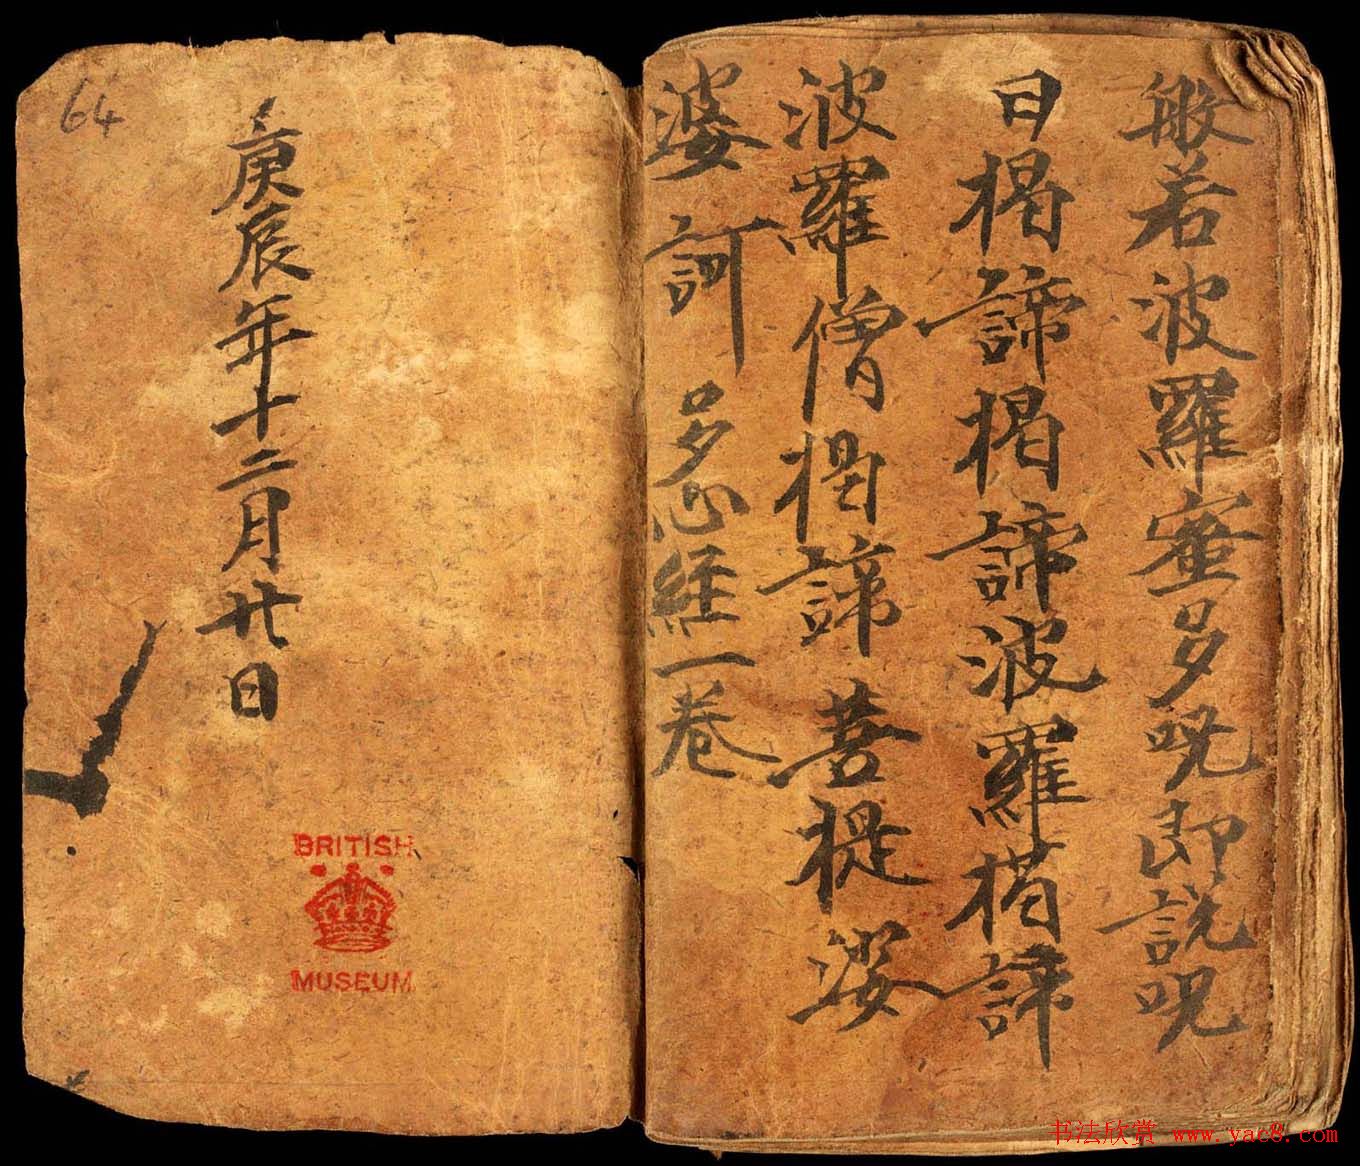 般若波羅蜜多呪即說呪
曰揭諦揭諦波羅揭諦
波羅僧揭諦菩提婆
婆訶 多心經一卷
庚辰年十二月廿日
64
BRITISH
MUSEUM
书法欣赏 www.yac8.com